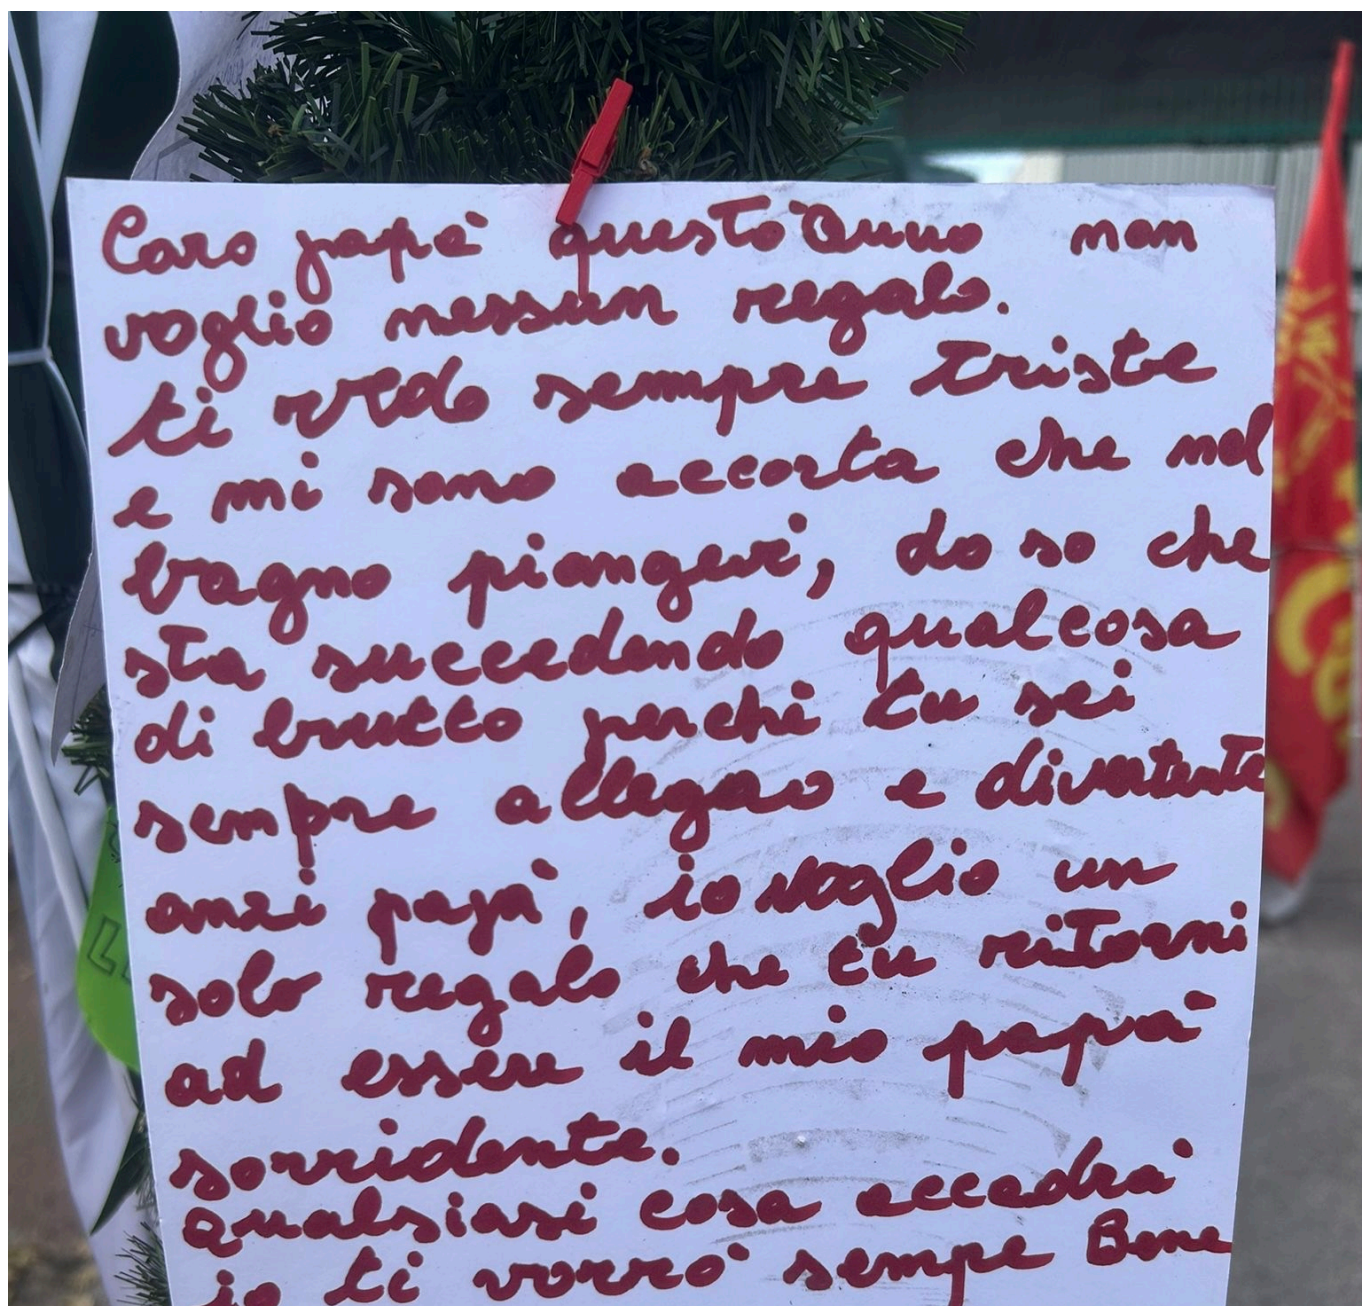 Caro papà quest'anno non
voglio nessun regalo.
ti vedo sempre triste
e mi sono accorta che nel
bagno piangevi, lo so che
sta succedendo qualcosa
di brutto perchè tu sei
sempre allegro e divertente
anzi papà, io voglio un
solo regalo che tu ritorni
ad essere il mio papà
sorridente.
qualsiasi cosa accadrà
io ti vorrò sempe Bene